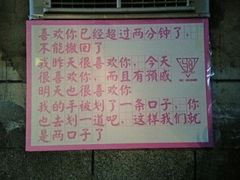 喜欢你已经超过两分钟了，
不能撤回了
我昨天很喜欢你，今天
很喜欢你，而且有预感
明天也很喜欢你
我的手被划了一条口子，你
也去划一道吧，这样我们就
是两口子了